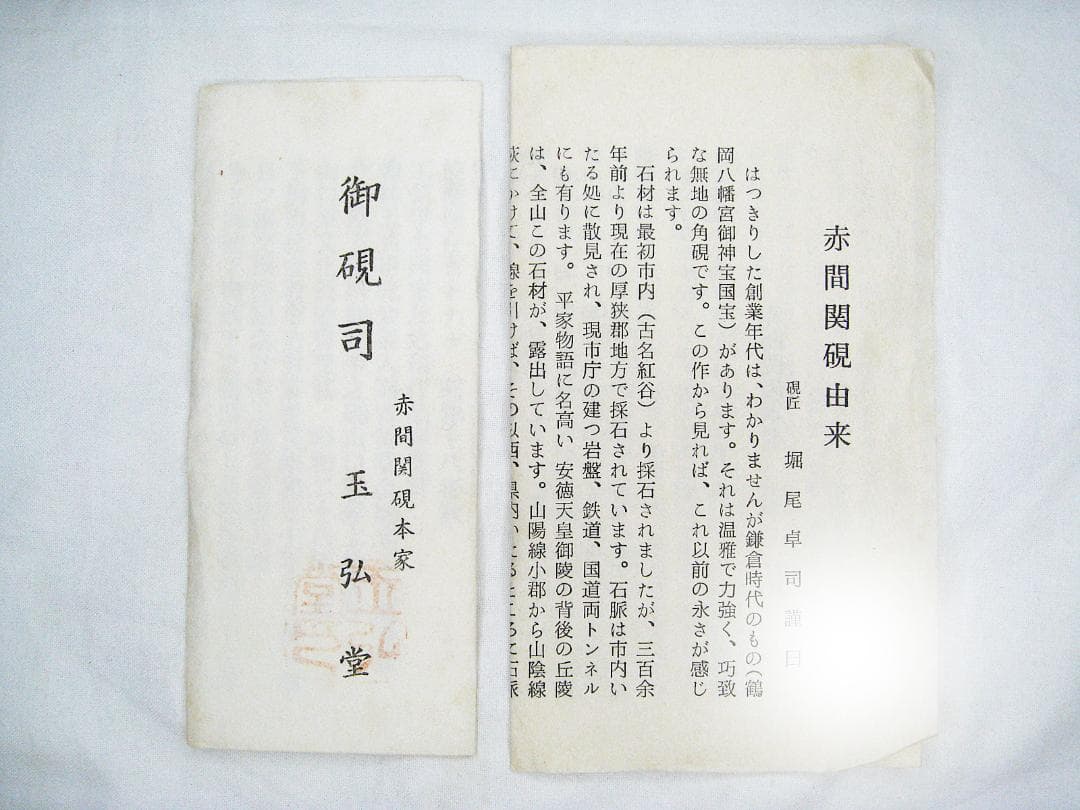 赤間関硯本家
御硯司 玉弘堂
赤間関硯由来
硯匠 堀尾卓司謹白
はつきりした創業年代は、わかりませんが鎌倉時代のもの(鶴
岡八幡宮御神宝国宝)があります。それは温雅で力強く、巧致
な無地の角硯です。この作から見れば、これ以前の永さが感じ
られます。
石材は最初市内(古名紅谷)より採石されましたが、三百余
年前より現在の厚狭郡地方で採石されています。石脈は市内い
たる処に散見され、現市庁の建つ岩盤、鉄道、国道両トンネル
にも有ります。 平家物語に名高い 安徳天皇御陵の背後の丘陵
は、全山この石材が、露出しています。山陽線小郡から山陰線
萩にかけて、線を引けば、その以西、県内いたるところに石脈